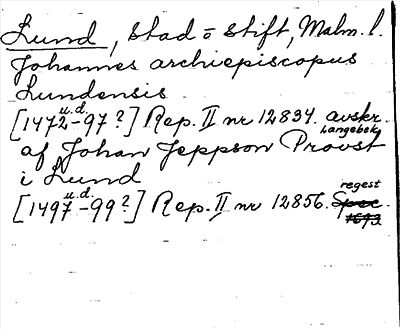 Lund, Stad o Stift, Malm. l.
Johannes archiepiscopus
Lundensis
u.d.
[1472-97?] Rep. II nr 12834. avskr.
Langebek
af Johan Jeppson Provst
i Lund
u.d. regest
[1497-99?] Rep. II nr 12856. Spec.
1693